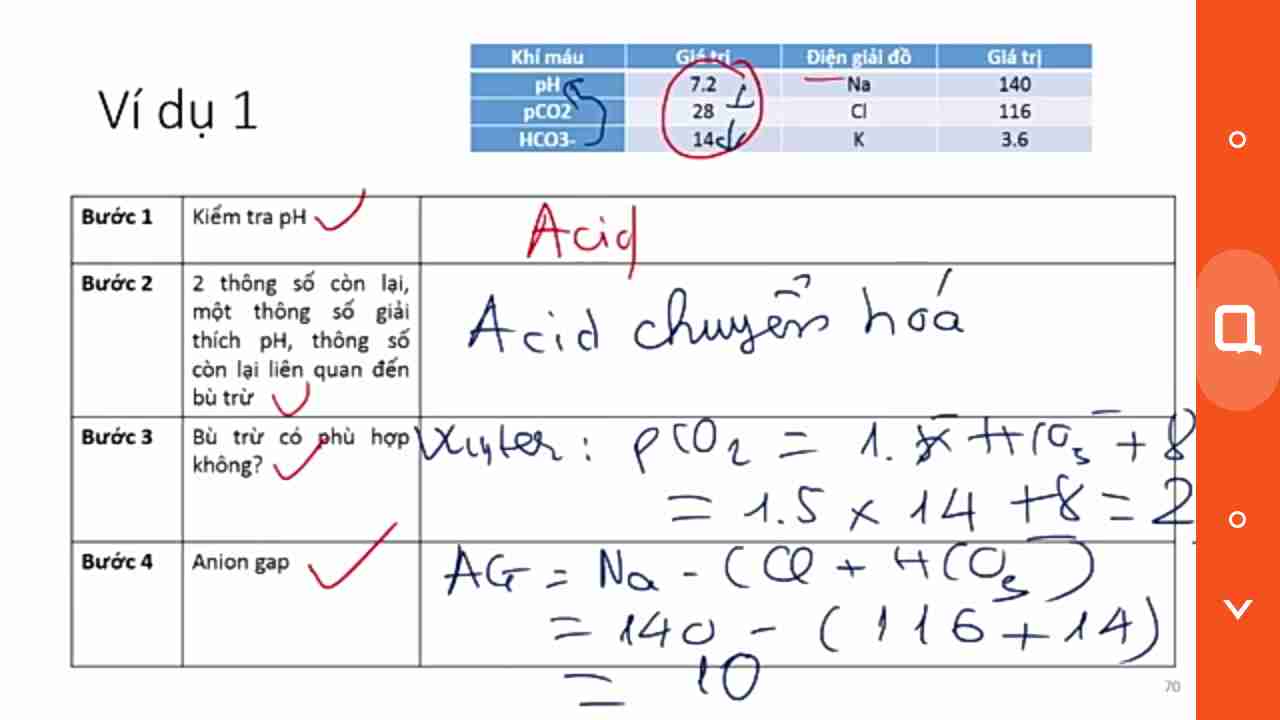 Ví dụ 1
Khí máu Giá trị Điện giải đồ Giá trị
pH 7.2 Na 140
pCO2 28 Cl 116
HCO3- 14 K 3.6
Bước 1 Kiểm tra pH Acid
Bước 2 2 thông số còn lại,
một thông số giải
thích pH, thông số
còn lại liên quan đến
bù trừ
Acid chuyển hoá
Bước 3 Bù trừ có phù hợp
không?
pCO2 = 1. HCO3- + 8
= 1.5 x 14 + 8 = 2
Bước 4 Anion gap
AG = Na - (Cl + HCO3-)
= 140 - (116 + 14)
= 10
70